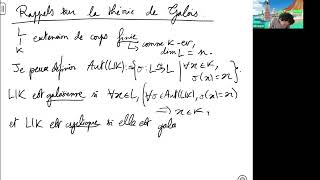 Rappels sur la théorie de Galois.
L
K extension de corps finie
↳ comme K-ev,
dim L = n.
Je peux définir Aut(L|K) = {σ: L ⥲ L | ∀x∈K,
σ(x)=x}
L|K est galoisienne si ∀x∈L, (∀σ∈Aut(L|K), σ(x)=x)
⟹ x∈K,
et L|K est cyclique si elle est galo